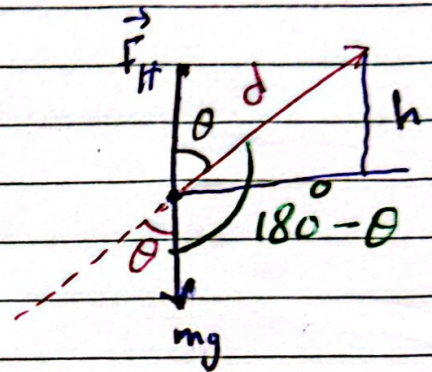 F⃗_H
d
θ
h
180° - θ
θ
mg